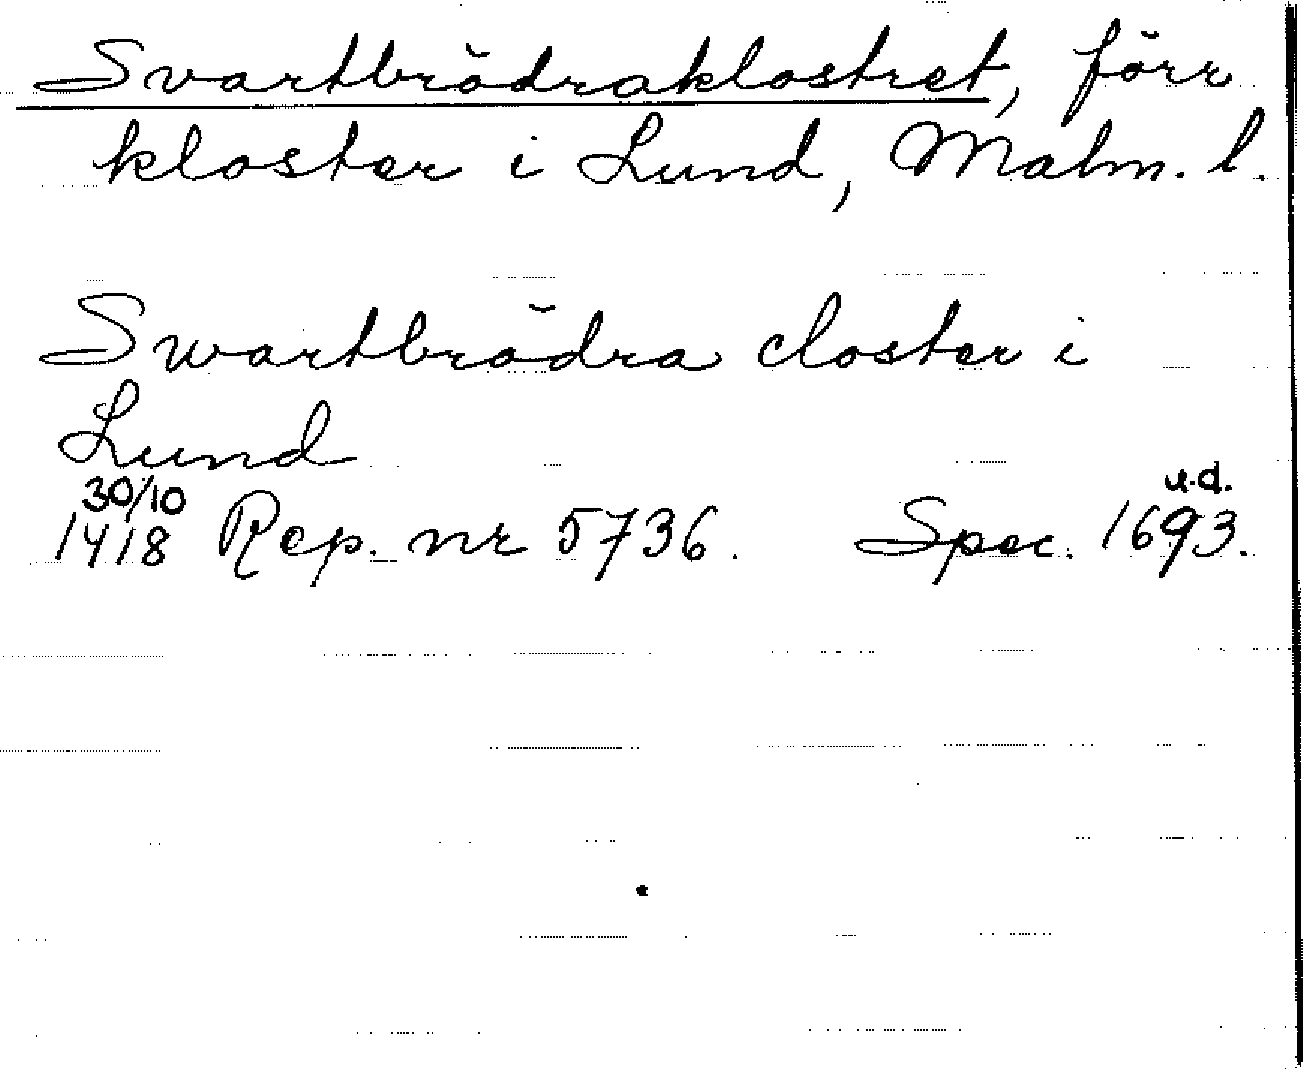 Svartbrödraklostret, förr
kloster i Lund, Malm. l.
Swartbrödra closter i
Lund
30/10 u.d.
1418 Rep. nr 5736. Spec. 1693.